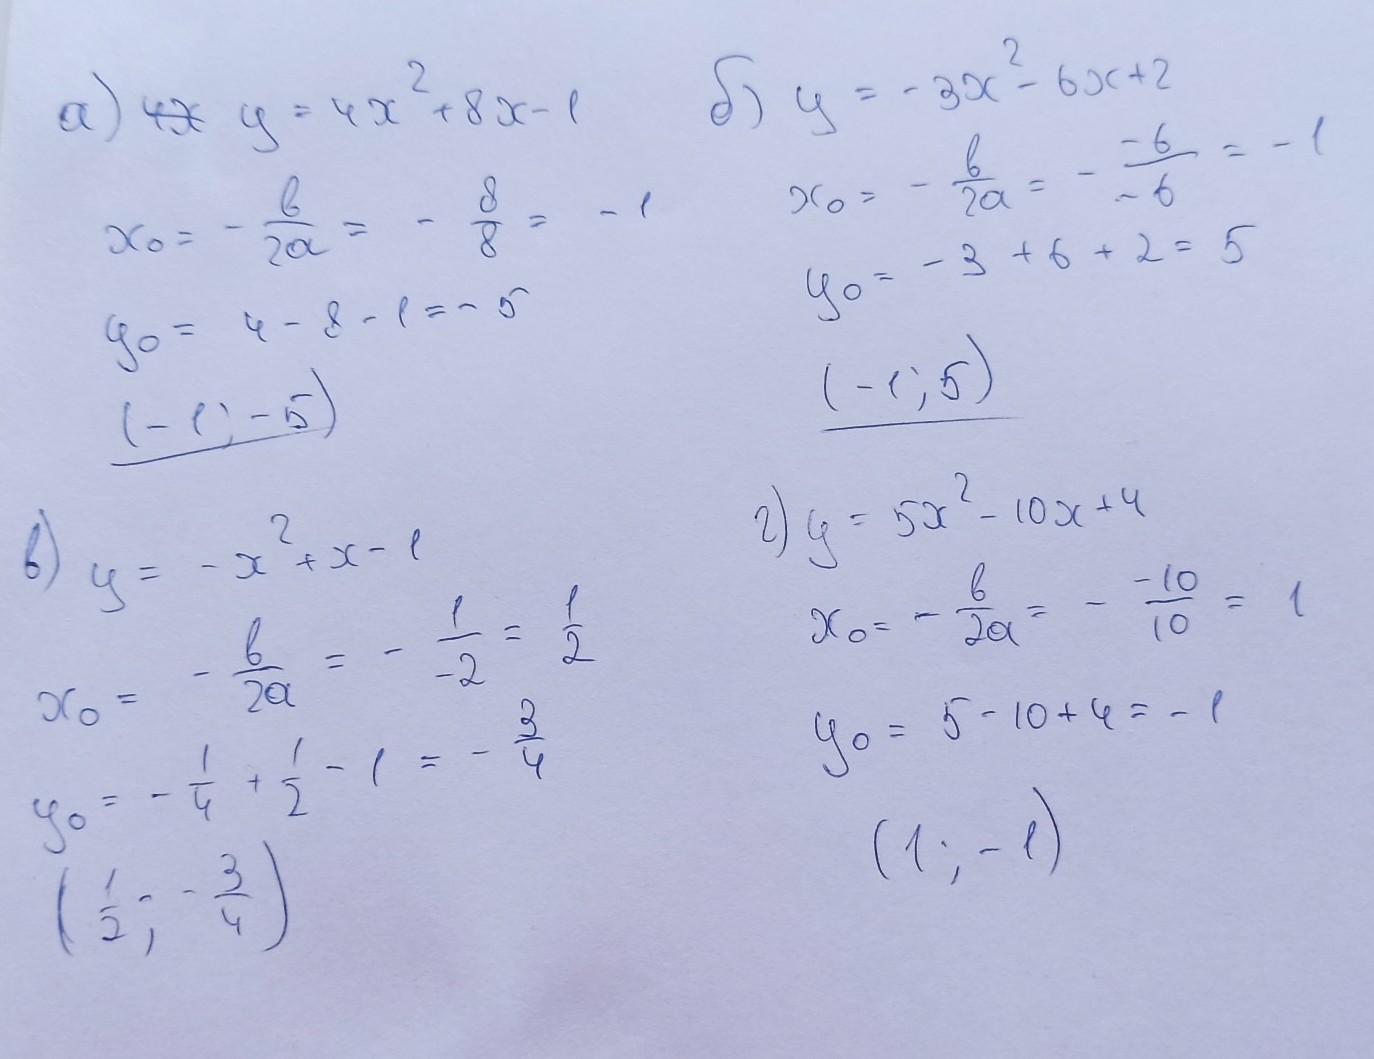 а) 4x y = 4x² + 8x - 1
x₀ = - b/2a = - 8/8 = - 1
y₀ = 4 - 8 - 1 = - 5
(-1; -5)
б) y = -3x² - 6x + 2
x₀ = - b/2a = - -6/-6 = - 1
y₀ = - 3 + 6 + 2 = 5
(-1; 5)
в) y = -x² + x - 1
x₀ = - b/2a = - 1/-2 = 1/2
y₀ = - 1/4 + 1/2 - 1 = - 3/4
(1/2; - 3/4)
г) y = 5x² - 10x + 4
x₀ = - b/2a = - -10/10 = 1
y₀ = 5 - 10 + 4 = - 1
(1; -1)